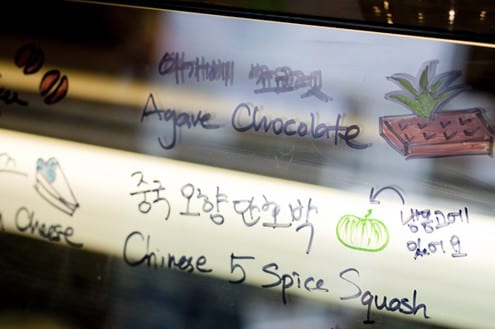 아가베 쵸콜렛
Agave Chocolate
중국 오향 단호박
냉장고에
있어요
Chinese 5 Spice Squash
Cheese